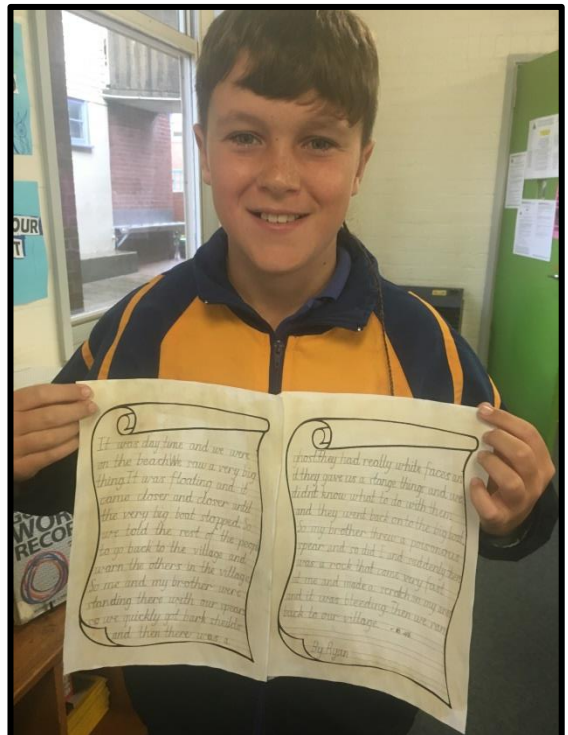 OUR
T
WOR
RECOR
It was day time and we were
on the beach.We saw a very big
thing.It was floating and it
came clover and clover until
the very big boat stopped. So
was told the rest of the people
to go back to the village and
warn the others in the village
So me and my brother were
standing there with our spears
so we quickly got bark shields
and then there was a
ghost they had really white faces an
they gave us a strange things and we
didn't know what to do with them
and they went back onto the big boat
So my brother threw a poisonous
spear and so did I and suddenly there
was a rock that come very fast
at me and made a scratch on my arm
and it was bleeding. Then we ran
back to our village
By Ryan